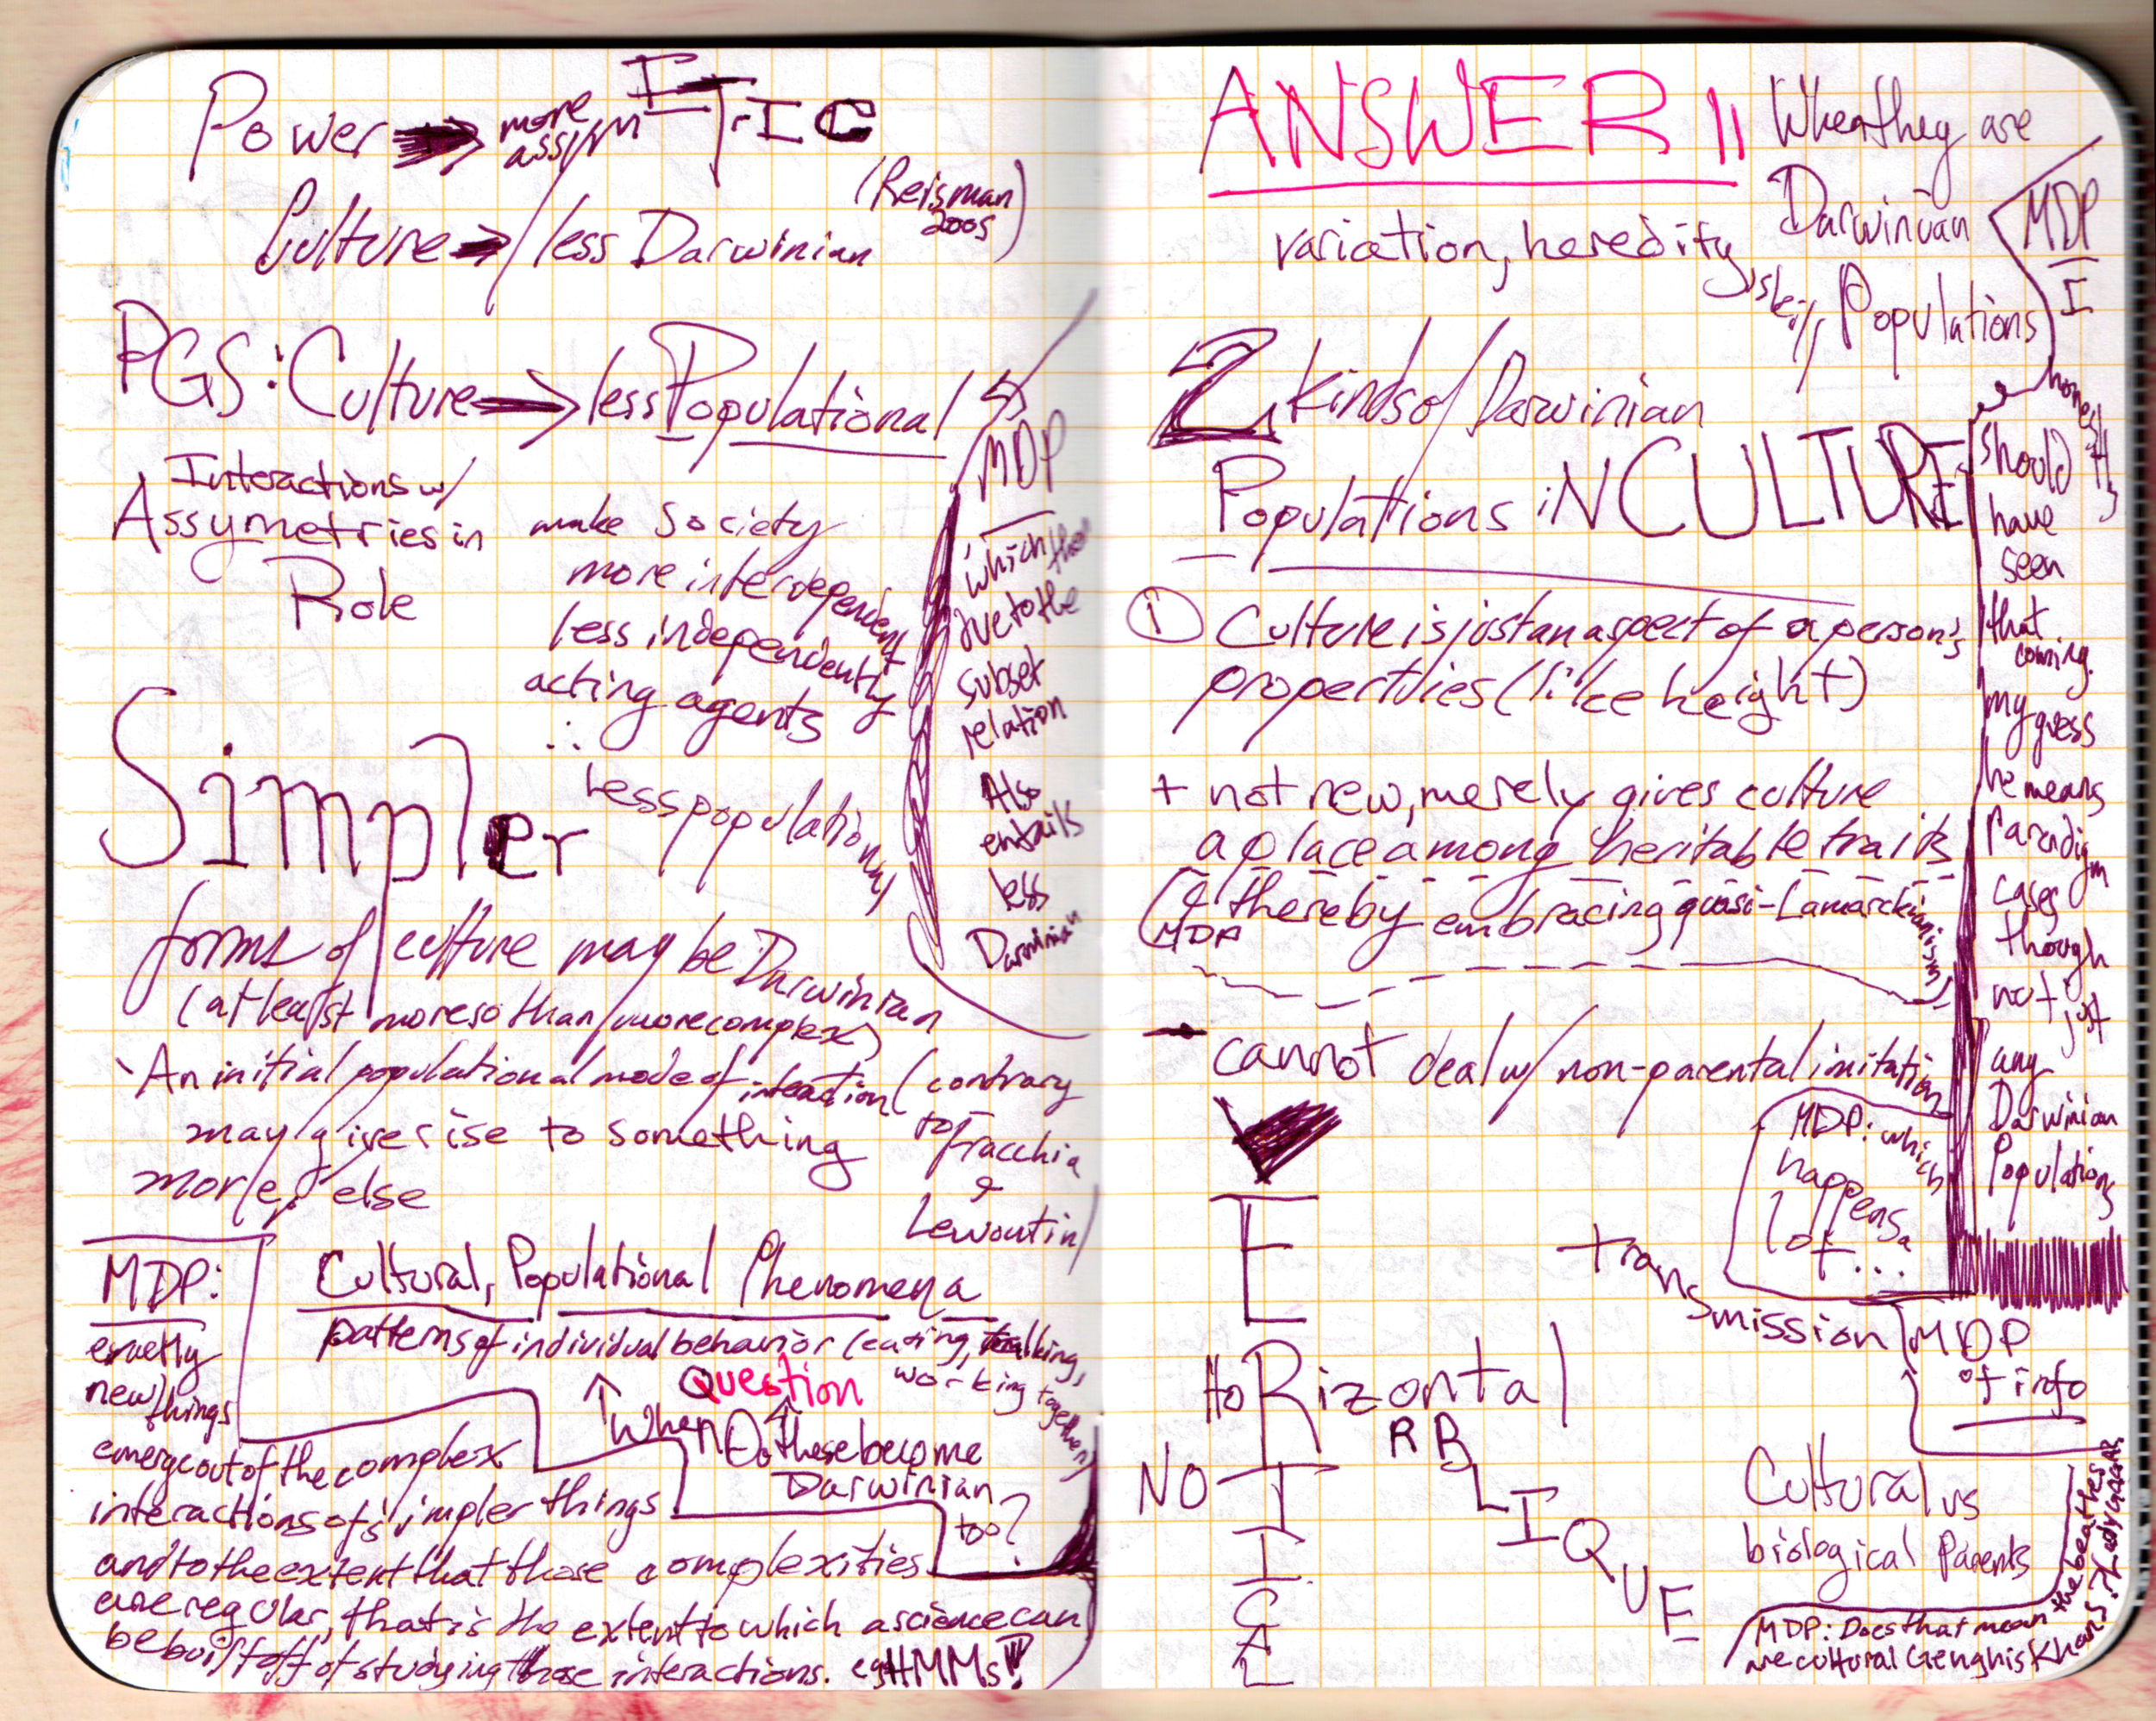 Power → more assym ETIC
(Reisman 2005)
Culture → less Darwinian
PGS: Culture → less Populational
Interactions w/
Assymetries in
Role
make society
more interdependent
less independently
acting agents
∴ less populational
MDP
which then
due to the
subset
relation
Also
entails
less
Darwinian
Simpler
forms of culture may be Darwinian
(at least moreso than more complex)
An initial populational mode of interaction
may give rise to something
more, else
(contrary
to Fracchia
&
Lewontin)
Cultural, Populational Phenomena
patterns of individual behavior (eating, talking,
working together)
Question
When Do these become
Darwinian
too?
MDP:
exactly
new things
emerge out of the complex
interactions of simpler things
and to the extent that those complexities
are regular, that is the extent to which a science can
be built off of studying those interactions. eg HMMs!
ANSWER 11
When they are
Darwinian
Populations
variation, heredity,
MDP
I
honestly
should
have
seen
that
coming.
my guess
he means
Paradigm
cases
though
not just
any
Darwinian
Populations
2 kinds of Darwinian
Populations iN CULTURE
① Culture is just an aspect of a person's
properties (like height)
+ not new, merely gives culture
a place among heritable traits
(& thereby embracing quasi-Lamarckianism)
MDP
→ cannot deal w/ non-parental imitation
MDP: which
happens a
lot...
VERTICAL
HoRizontal
NO
OBLIQUE
transmission
MDP
of info
Cultural vs
biological Parents
MDP: Does that mean the beatles
are cultural Genghis Khans? Lady GAGA?